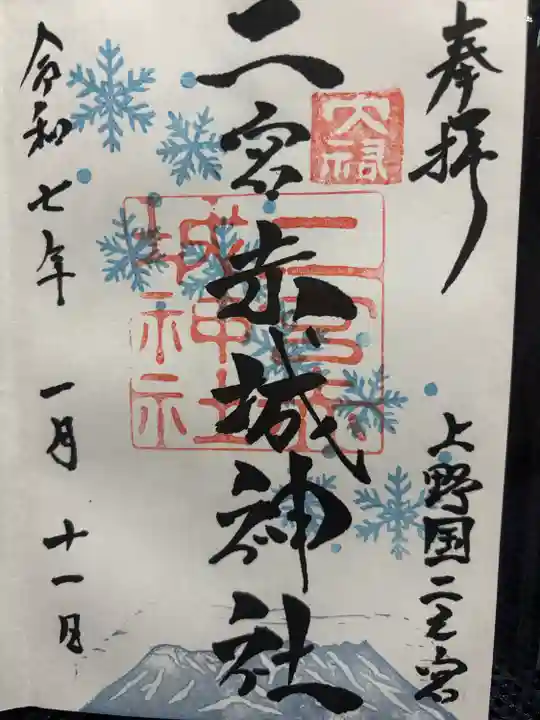 奉拝
上野国二之宮
大祠
二宮赤城神社
二宮赤城神社
令和七年 一月 十一日